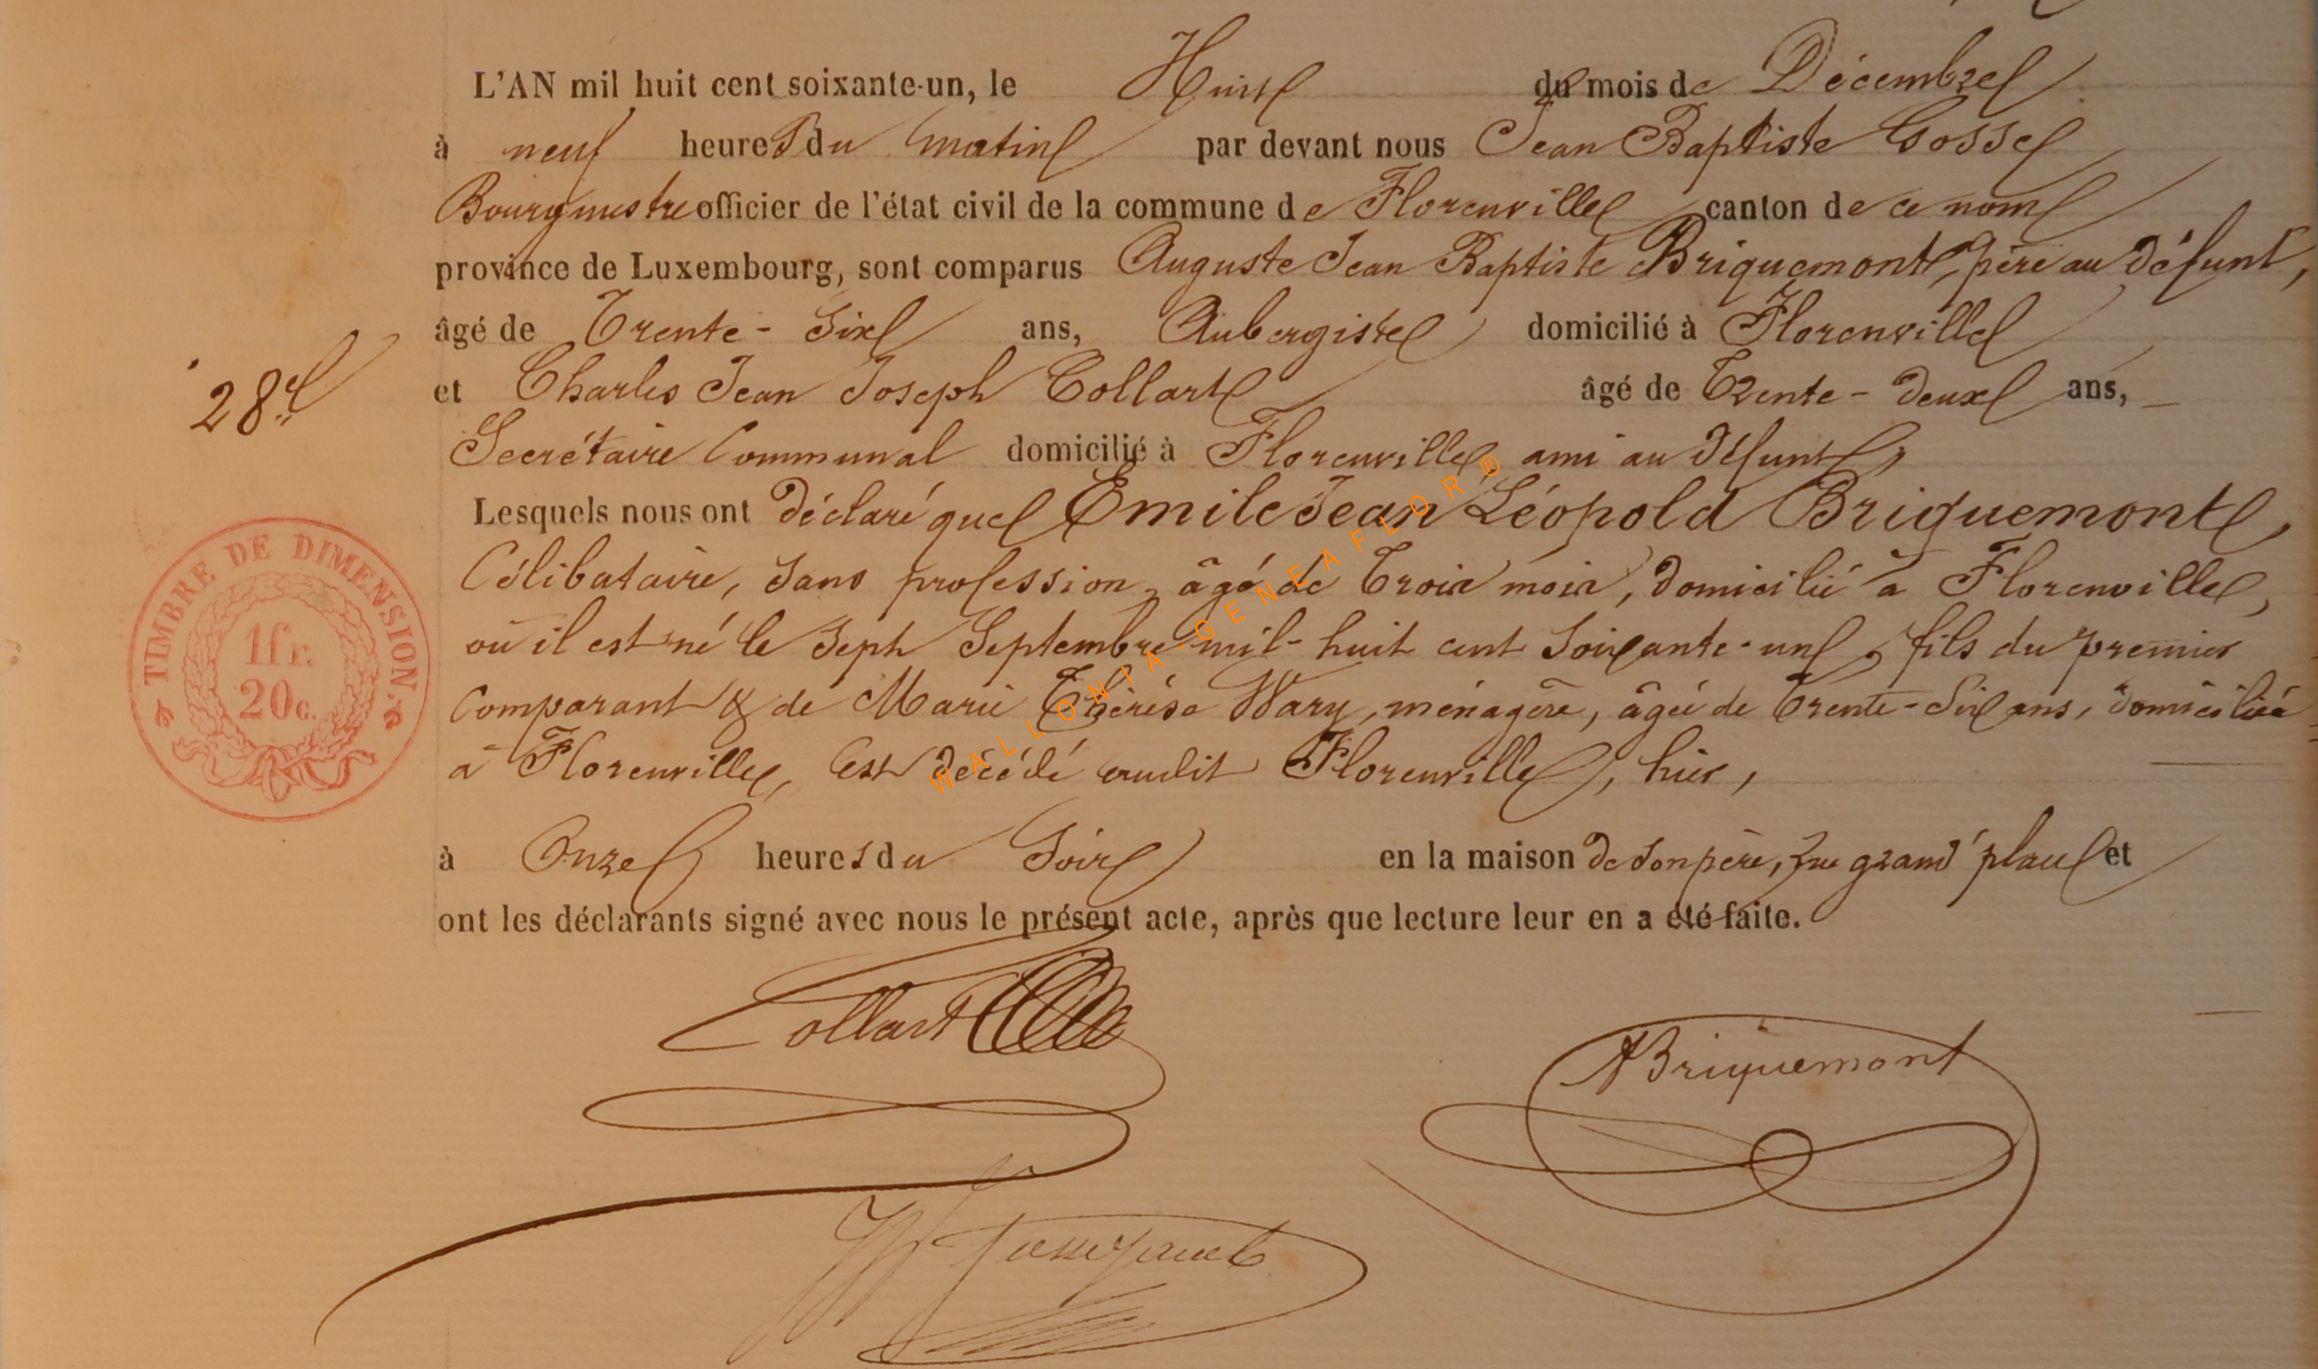 L'AN mil huit cent soixante-un, le Huit du mois de Décembre
à neuf heures du matin par devant nous Jean Baptiste Gosse
Bourgmestre officier de l'état civil de la commune de Florenville canton de ce nom
province de Luxembourg, sont comparus Auguste Jean Baptiste Briquemont, père au défunt,
âgé de Trente-Six ans, Aubergiste domicilié à Florenville
28e
et Charles Jean Joseph Collart âgé de Trente-deux ans,
Secrétaire Communal domicilié à Florenville ami au défunt,
Lesquels nous ont déclaré que Emile Jean Léopold Briquemont,
Célibataire, sans profession, âgé de Trois mois, domicilié à Florenville,
où il est né le Sept Septembre mil-huit cent soixante-un, fils du premier
comparant & de Marie Thérèse Wary, ménagère, âgée de Trente-Six ans, domiciliée
à Florenville, est décédé audit Florenville, hier,
à Onze heures du Soir en la maison de son père, rue grand'place et
ont les déclarants signé avec nous le présent acte, après que lecture leur en a été faite.
TIMBRE DE DIMENSION,
1fr.
20c.
WALLONIA GENEAFLOR®
Collart
ABriquemont